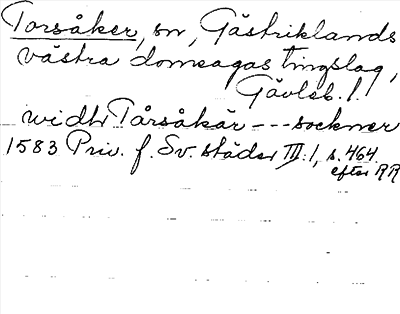 Torsåker, sn, Gästriklands
västra domsagas tingslag,
Gävleb. l.
widh Tårsåkär --- sockner
1583 Priv. f. Sv. städer III:1, s. 464
efter RR